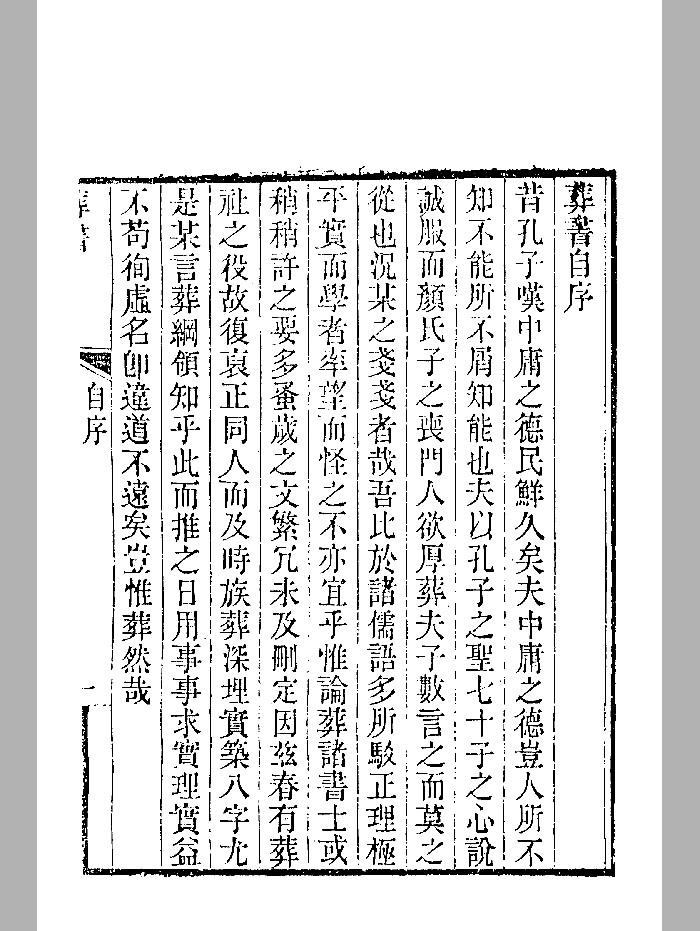 葬書自序
昔孔子嘆中庸之德民鮮久矣夫中庸之德豈人所不
知不能所不屑知能也夫以孔子之聖七十子之心說
誠服而顏氏子之喪門人欲厚葬夫子數言之而莫之
從也況某之戔戔者哉吾比於諸儒語多所駁正理極
平實而學者率望而怪之不亦宜乎惟論葬諸書士或
稍稍許之要多蚤歲之文繁冗未及刪定因茲春有葬
社之役故復裒正同人而及時族葬深埋實築八字尤
是某言葬綱領知乎此而推之日用事事求實理實益
不苟徇虛名卽違道不遠矣豈惟葬然哉
葬書
自序
一